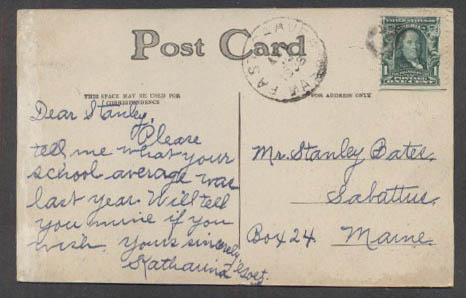 Post Card
THIS SPACE MAY BE USED FOR
CORRESPONDENCE
FOR ADDRESS ONLY
Dear Stanley,
Please
tell me what your
school average was
last year. Will tell
you mine if you
wish. Yours sincerely
Katharine
Mr. Stanley Bates.
Sabattus.
Box 24 Maine.
EAST
1